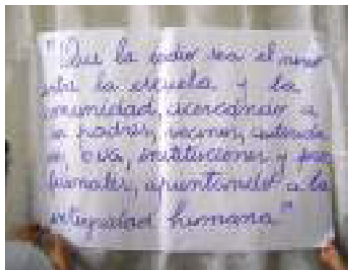 "Que la radio sea el nexo
entre la escuela y la
comunidad, acercando a
los padres, vecinos,
en ova, instituciones y
a la
integralidad humana"